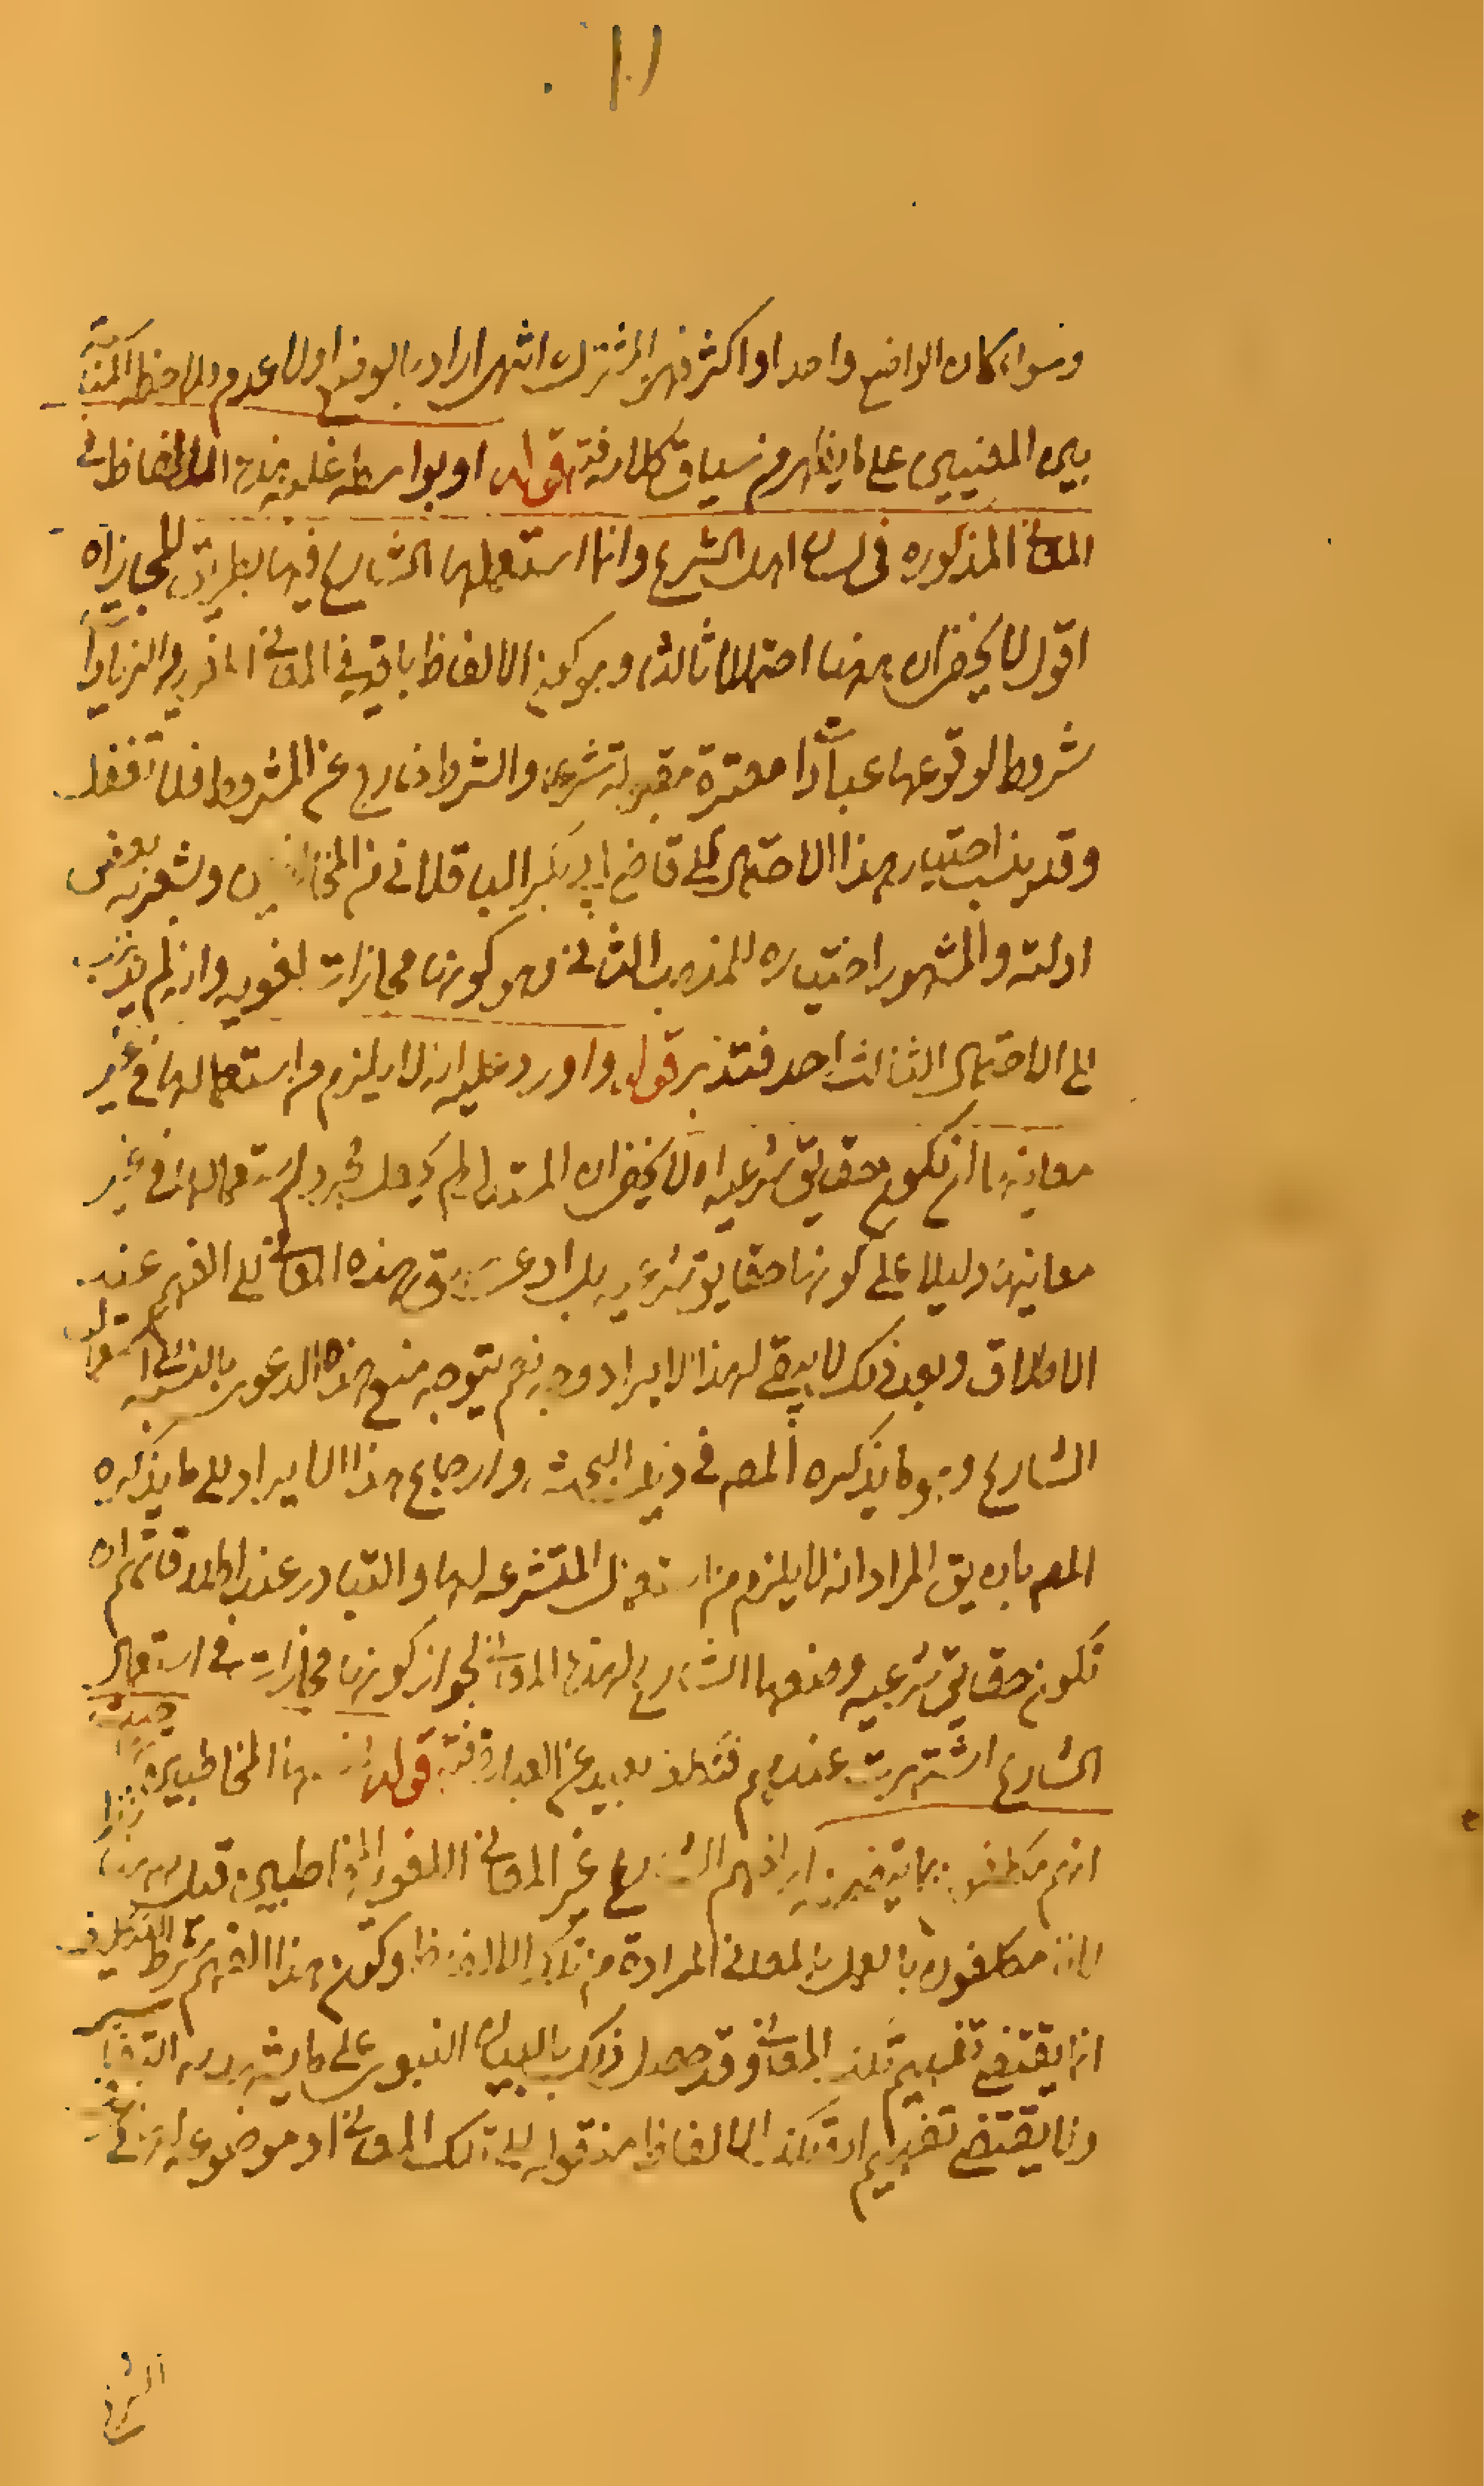 وسواء كان الواضع واحدا او اكثر فهو المشترك انتهى اراد بالوضع اولا عدم ملاحظة المناسبة
بين المعنيين على ما يظهر من سياق كلامه فت قوله او بواسطه غلبة هذه الالفاظ في
المعاني المذكوره في لسان اهل الشرع وانما استعملها الشارع فيها بطريق المجاز اه
اقول لا يخفى ان ههنا احتمالا ثالثا وهو كون الالفاظ باقية في المعاني اللغوية والزيادات
شروط لوقوعها عبادات معتبرة مقبولة شرعا والشرط خارج عن المشروط فلا تغفل
وقد ينسب اختيار هذا الاحتمال الى قاضي ابي بكر الباقلاني من المخالفين ويشعر به بعض
ادلته والمشهور اختياره للمذهب الثاني وهو كونها مجازات لغويه وانه لم يذهب
الى الاحتمال الثالث احد فتدبر قوله واورد عليه انه لا يلزم من استعمالها في غير
معانيها ان تكون حقايق شرعيه اه لا يخفى ان المستدل لم يجعل مجرد استعمالها في غير
معانيها دليلا على كونها حقايق شرعيه بل ادعى سبق هذه المعاني الى الفهم عند
الاطلاق وبعد ذلك لا يبقى لهذا الايراد وجه نعم يتوجه منع هذه الدعوى بالنسبة الى استعمال
الشارع وهو ما يذكره المص في ذيل البحث وارجاع هذا الايراد الى ما يذكره
المص بان يق المراد انه لا يلزم من استعمال المتشرعه لها والتبادر عند اطلاقاتهم ان
تكون حقايق شرعيه وضعها الشارع لهذه المعاني لجواز كونها مجازات في استعمال
الشارع اشتهرت عندهم فتكلف بعيد عن العبارة فت قوله لفهمها المخاطبين بها حيث
انهم مكلفون بما يتضمنه اي لفهم الشارع غير المعاني اللغوية المخاطبين قبل
لانهم مكلفون بالعمل بالمعاني المرادة من تلك الالفاظ وكون هذا الفهم شرط التكليف
انما يقتضي تفهيم تلك المعاني وقد حصل ذلك بالبيان النبوي على ما يشهد به
ولا يقتضي تفهيم ان تلك الالفاظ منقوله الى تلك المعاني او موضوعه لها في
الشرع